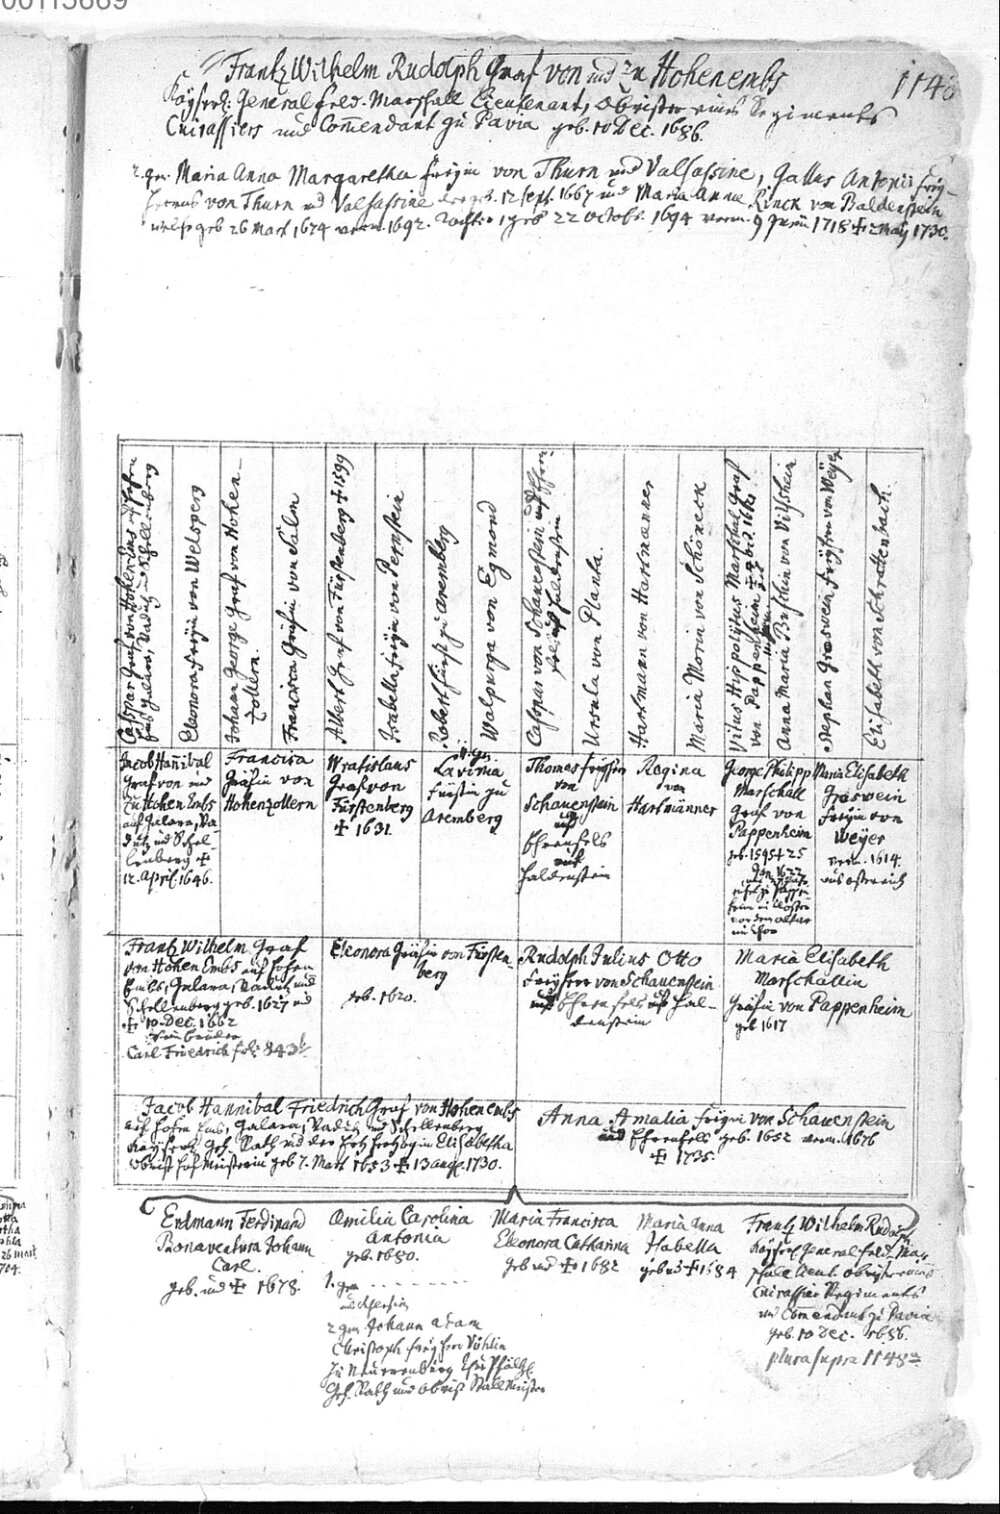 00115669
Frantz Wilhelm Rudolph Graf von und zu Hohenembs
1148
Kayserl: General feld-Marschall Lieutenant, Obrister eines Regiments
Cuirassiers und Commendant zu Pavia geb. 10 Dec. 1686.
Maria Anna Margaretha freyin von Thurn und Valsassine, Gallus Antonii frey-
herrns von Thurn und Valsassine geb. 12 sept. 1667 und Maria Anna Rinck von Baldenstein
geb 26 Mart 1674 verm. 1692. Tochter geb 22 Octobr. 1694 verm. 9 Junii 1718 + 2 Maij 1730.
Caspar Graf von HohenEmbs auf hohen
Embs, Galara, Vaduz und Schellenberg
Eleonora freyin von Welsperg
Johann George Graf von Hohen-
Zollern.
Francisca Gräfin von Salm
Albert Graf von Fürstenberg + 1599
Isabella freyin von Pernstein
Robert fürst zu Aremberg
Walpurga von Egmond
Caspar von Schauenstein auf Ehren-
fels auf haldenstein
Ursula von Planta.
Hartmann von Hartmannes
Maria Moria von Schöneck
Vitus Hippolytus Marschal Graf
von Pappenheim
Anna Maria von Vilshein
Stephan Graswein freyherr von Weyer
Elisabeth von Schrattenbach.
Jacob Hannibal
Graf von und
zu Hohen Embs
auf Galara, Va-
duz und Schel-
lenberg +
12. April. 1646.
Francisca
Gräfin von
Hohenzollern
Wratislaus
Graf von
Fürstenberg
+ 1631.
Lavinia
fürstin zu
Aremberg
Thomas freyherr
von
Schauenstein
auf
Ehrenfels
auf
haldenstein
Regina
von
Hartmannes
George Philipp
Marschall
Graf von
Pappenheim
geb. 1595 + 25
Jan. 1622
Maria Elisabeth
Graswein
freyin von
Weyer
verm. 1614.
aus Österreich
Frantz Wilhelm Graf
von Hohen Embs auf hohen
Embs, Galara, Vaduz und
Schellenberg geb. 1627 und
+ 10 Dec. 1662
sein bruder
Carl Friedrich fol: 843
Eleonora Gräfin von Fürsten-
berg
geb. 1620.
Rudolph Julius Otto
freyherr von Schauenstein
auf Ehrenfels auf hal-
denstein
Maria Elisabeth
Marschallin
Gräfin von Pappenheim
geb 1617
Jacob Hannibal Friedrich Graf von Hohenembs
auf hohen Embs, Galara, Vaduz und Schellenberg
Kayserl. Geh. Rath und der Ertzhertzogin Elisabetha
Obrist hofmeister geb 7. Mart 1653 + 13 aug. 1730.
Anna Amalia freyin von Schauenstein
und Ehrenfels geb. 1652 verm. 1676
+ 1735.
Erdmann Ferdinand
Bonaventura Johann
Carl.
geb. und + 1678.
Amilia Carolina
Antonia
geb. 1680.
1. gem
2 gem Johann Adam
Christoph freyherr Vöhlin
zu Neuernburg
Geh. Rath und Obrist Stallmeister
Maria Francisca
Eleonora Catharina
geb und + 1682
Maria Anna
Isabella
geb und + 1684
Frantz Wilhelm Rudolph
Kayserl General feld-Mar-
schall Lieut. Obrister eines
Cuirassier Regiments
und Commendant zu Pavia
geb. 10 Dec. 1686.
plura supra 1148